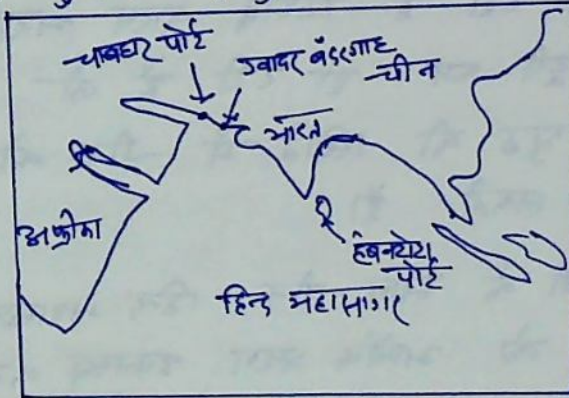 चाबहार पोर्ट
ग्वादर बंदरगाह
चीन
भारत
अफ्रीका
हंबनटोटा
पोर्ट
हिन्द महासागर